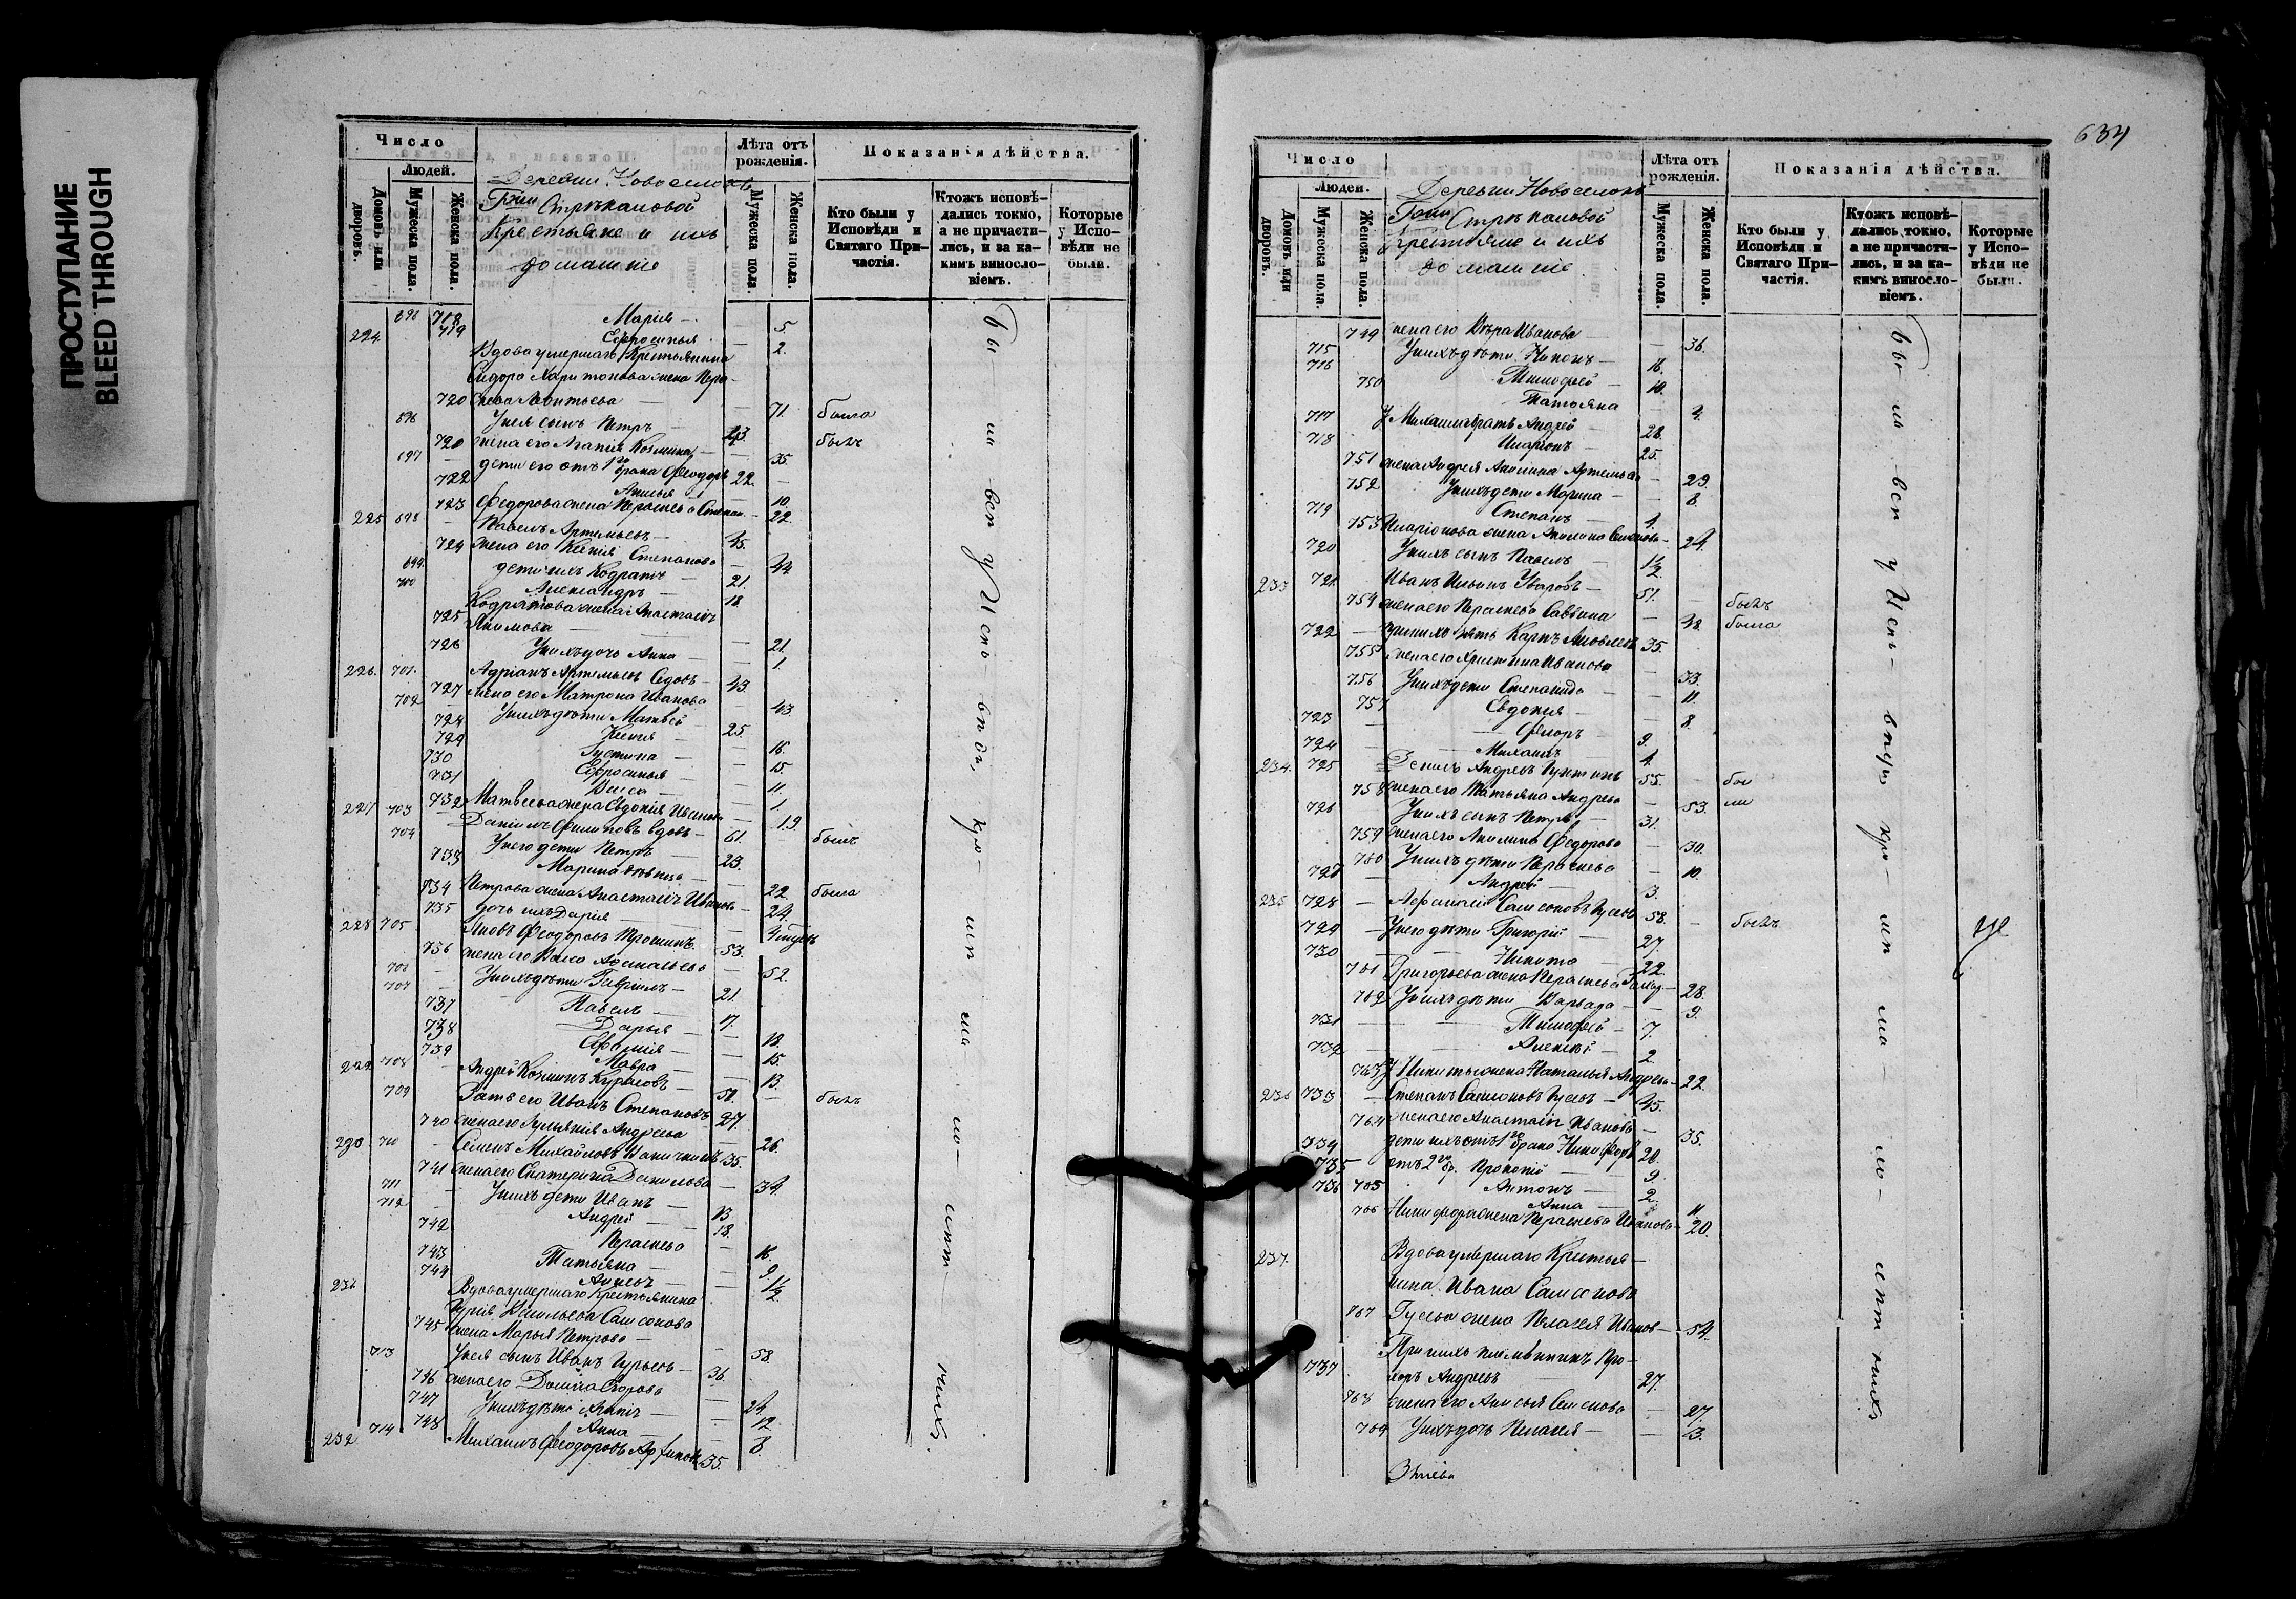 ПРОСТУПАНИЕ
BLEED THROUGH
Число
Людей.
Домовъ или дворовъ.
Мужеска пола.
Женска пола.
Деревни Новоселокъ
Гжи Стрѣкаловой
Крестьяне и ихъ
домашніе
Лѣта отъ рожденія.
Мужеска пола.
Женска пола.
Показанія дѣйства.
Кто были у Исповѣди и Святаго Причастія.
Ктожъ исповѣдались токмо, а не причастились, и за какимъ винословіемъ.
Которые у Исповѣди не были.
718 Марія — 5.
224 719 Ефросинья — 2.
Вдова умершаго Крестьянина
Сидора Харитонова жена Пера-
720 скева Леонтьева — 71 была
696 У нея сынъ Петръ — 43. былъ
жена его Агапія Козмина — 35.
697 дети его отъ 1го брака Феодоръ 22.
722 Анисья — 10.
723 Федорова жена Параскева Степан. — 22
225 698 Павелъ Артемьевъ — 45.
724 жена его Ксенія Степанова — 44
699 дети ихъ Кодратъ — 21.
700 Александръ — 18
Кодратова жена Анастасія
725 Якимова — 21.
726 У нихъ дочь Анна — 1.
226. 701. Адріанъ Артемьевъ Седовъ — 43.
727 жена его Матрона Иванова — 43.
702 У нихъ дѣти Матвей — 25
728 Ксенія — 16.
729 Іустина — 15.
730 Ефросинья — 11.
731 Васса — 1.
732 Матвеева жена Евдокія Иванова — 19.
227 703 Даніилъ Филиповъ вдовъ — 61. былъ
704 У него дети Петръ — 23.
733 Марина дѣвица — 22. была
734 Петрова жена Анастасія Иванова — 24.
735 дочь ихъ Дарія —
228 705 Яковъ Феодоровъ Трошинъ 53.
736 жена его Васса Афанасьева — 52.
706 У нихъ дѣти Гаврилъ — 21.
707 Павелъ — 17.
737 Дарья — 18.
738 Ефимія — 15.
739 Мавра — 13.
229 708 Андрей Козминъ Курасовъ — 51. былъ
709 Зять его Иванъ Степановъ 27.
740 жена его Гуліянія Андреева — 26.
230 710 Семенъ Михайловъ 35.
741 жена его Екатерина Данилова — 34.
711 У нихъ дети Иванъ — 13
712 Андрей —
742 Параскева — 16.
743 Татьяна — 9.
744 1½
231 Вдова умершаго Крестьянина
Гурія Васильева Самсонова
745 жена Марья Петрова — 58.
713 У нея сынъ Иванъ Гурьевъ — 36.
746 жена его Домна Егорова — 24
747 У нихъ дѣти Агапія — 12
748 Анна — 8.
232 714 Михаилъ Феодоровъ 35.
бы ли вси у Испо вѣди, кро мѣ ма ло лѣт нихъ.
634
Число
Людей.
Домовъ или дворовъ.
Мужеска пола.
Женска пола.
Деревни Новоселокъ
Гжи Стрѣкаловой
крестьяне и ихъ
домашніе
Лѣта отъ рожденія.
Мужеска пола.
Женска пола.
Показанія дѣйства.
Кто были у Исповѣди и Святаго Причастія.
Ктожъ исповѣдались токмо, а не причастились, и за какимъ винословіемъ.
Которые у Исповѣди не были.
749 жена его Вѣра Иванова — 36.
715 У нихъ дѣти Никонъ — 16.
716 Тимофей — 10.
750 Татьяна — 4.
717 У Михаила братъ Андрей — 28.
718 Иларіонъ — 25.
751 жена Андрея Акилина Артемьева — 29.
752 У нихъ дети Марина — 8.
719 Степанъ — 4.
753 Иларіонова жена Акилина — 24.
720 У нихъ сынъ Павелъ — 1½
233 721 Иванъ Ильинъ Уваровъ — 51. былъ
754 жена его Параскева Саввина — 48 была
722 при нихъ зять Карпъ Яковлевъ 35.
755 жена его Христина Иванова — 33.
756 У нихъ дети Степанида — 11.
757 Евдокія — 8.
723 Флоръ — 9.
724 Михаилъ — 4.
234. 725 Андреевъ 55. бы
758 жена его Татьяна Андреева — 53. ли
726 У нихъ сынъ Петръ — 31.
759 жена его Акилина Федорова — 30.
760 У нихъ дѣти Параскева — 10.
727 Андрей — 3.
235 728 Афанасій Самсоновъ Гусевъ 58. былъ
729 У него дѣти Григорій — 27.
730 Никита — 22.
761 Григорьева жена Параскева — 28.
762 У нихъ дѣти Варвара — 9.
731 Тимофей — 7.
732 Алексѣй — 2
763 У Никиты жена Наталья Андреева — 22.
236 733 Степанъ Самсоновъ Гусевъ — 45.
764 жена его Анастасія Иванова — 35.
734 дети ихъ отъ 1го брака Никифоръ 20.
735 отъ 2го бр. Прокопій — 9.
736 Антонъ — 2.
765 Анна — 11
766 Никифора жена Параскева Иванова — 20.
237. Вдова умершаго Крестья-
нина Ивана Самсонова
767 Гусева жена Пелагея Иванов — 54.
При нихъ племянникъ Про-
737 хоръ Андреевъ — 27.
768 жена его Анисья Семенова — 27.
769 У нихъ дочь Пелагея — 3.
бы ли вси у Испо вѣди кро мѣ ма ло лѣт нихъ